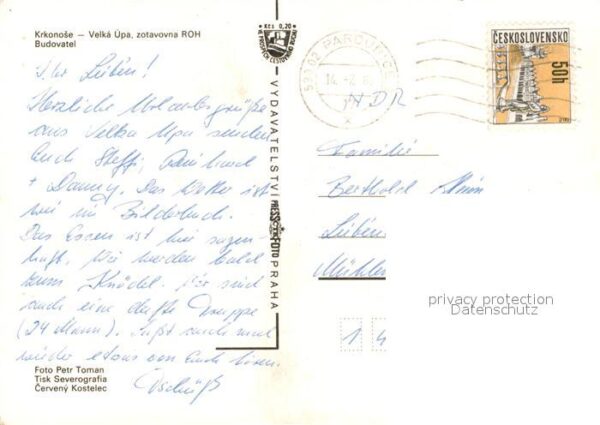 Krkonoše — Velká Úpa, zotavovna ROH
Budovatel
Ihr Lieben!
Herzliche Urlaubsgrüße
aus Velká Upa senden
Euch Steffi,
+ Danny. Das Wetter ist
wie im Bilderbuch.
Das Essen ist hier sagen-
haft. Wir werden bald
zum Knödel. Wir sind
auch eine dufte Truppe
(24 Mann). Laßt auch mal
wieder etwas von Euch hören.
Tschüß
Foto Petr Toman
Tisk Severografia
Červený Kostelec
Kčs 0,20
VYDAVATELSTVÍ PRESSFOTO PRAHA
PARDUBICE
ČESKOSLOVENSKO
50h
DDR
Familie
Berthold
Mühlen
privacy protection
Datenschutz